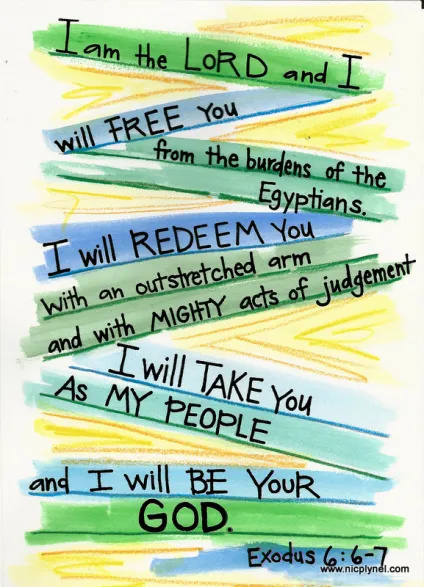 I am the LORD and I
will FREE You
from the burdens of the
Egyptians.
I will REDEEM You
with an outstretched arm
and with MIGHTY acts of judgement
I will TAKE You
As MY PEOPLE
and I will BE YouR
GOD.
Exodus 6:6-7
www.nicplynel.com